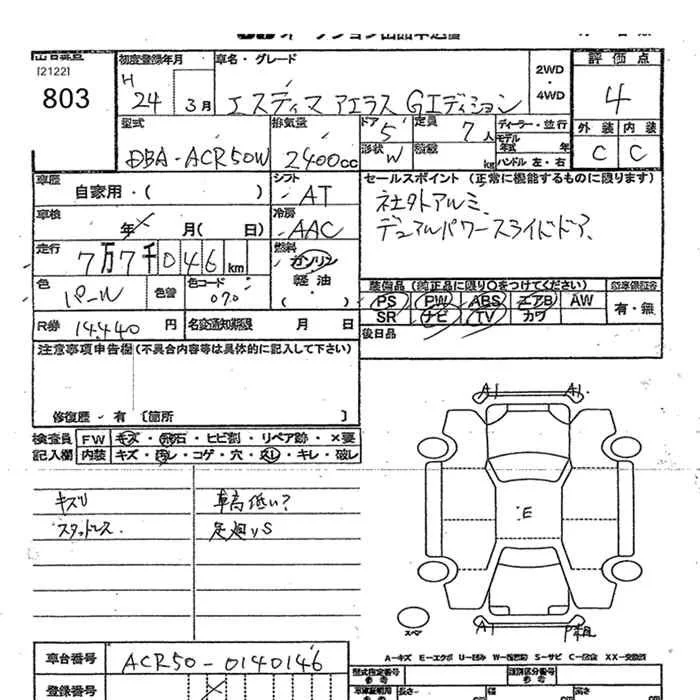 オークション出品申込書
出品番号 初度登録年月 車名・グレード 2WD・4WD 評価点
[2122]
803
H 24年 3月 エスティマ アエラス Gエディション 4
型式 排気量 ドア 5 定員 7人 ディーラー・並行 外装 内装
DBA-ACR50W 2400cc 形状 W 積載 kg モデル年式 年 ハンドル 左・右 C C
車歴 自家用・( ) シフト AT セールスポイント (正常に機能するものに限ります)
車検 年 月( 日) 冷房 AAC 社外アルミ
デュアルパワースライドドア
走行 7万7千046km 燃料 ガソリン
軽油
( )
色 パール 色替 色コード 070
装備品 (純正品に限り○をつけてください)
PS PW ABS エアB AW 有・無
SR ナビ TV カワ
R券 14,440円 名変通知期限 月 日 後日品
注意事項申告欄(不具合内容等は具体的に記入して下さい)
修復歴・有 [箇所 ]
検査員 FW キズ・飛石・ヒビ割・リペア跡・×要
記入欄 内装 キズ・汚レ・コゲ・穴・スレ・キレ・破レ
キズU 車高低い?
スタットレス. 足廻US
A1 A1
E
A1 P組
スペア
A-キズ E-エクボ U-凹み W-波 S-サビ C-腐食 XX-交換済
車台番号 ACR50-0140146
登録番号
型式指定番号 類別区分番号
長さ 幅 高さ